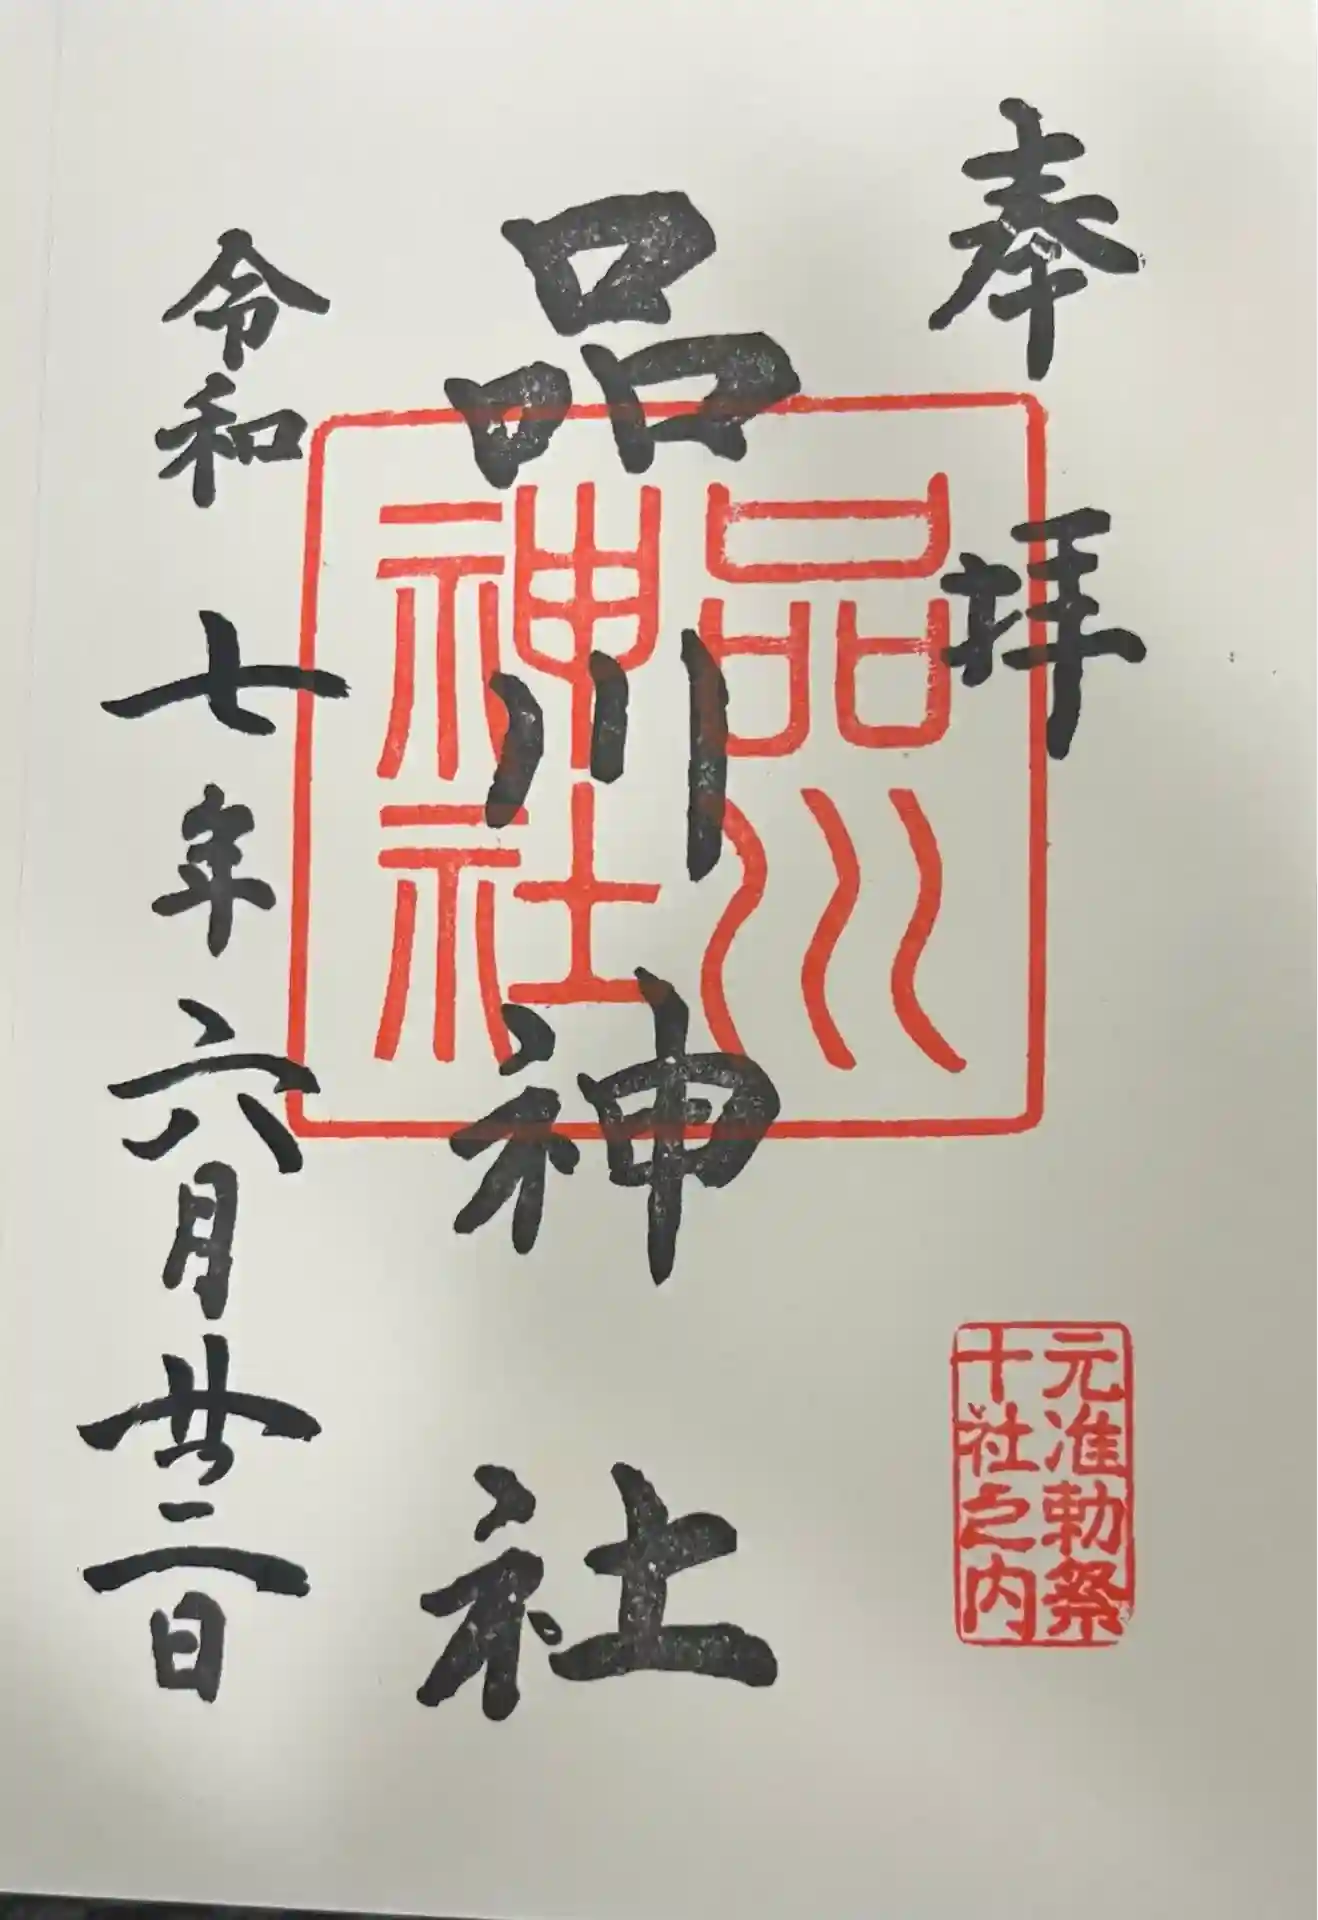 奉拝
元准勅祭
十社之内
品川神社
品川
神社
令和七年六月廿二日